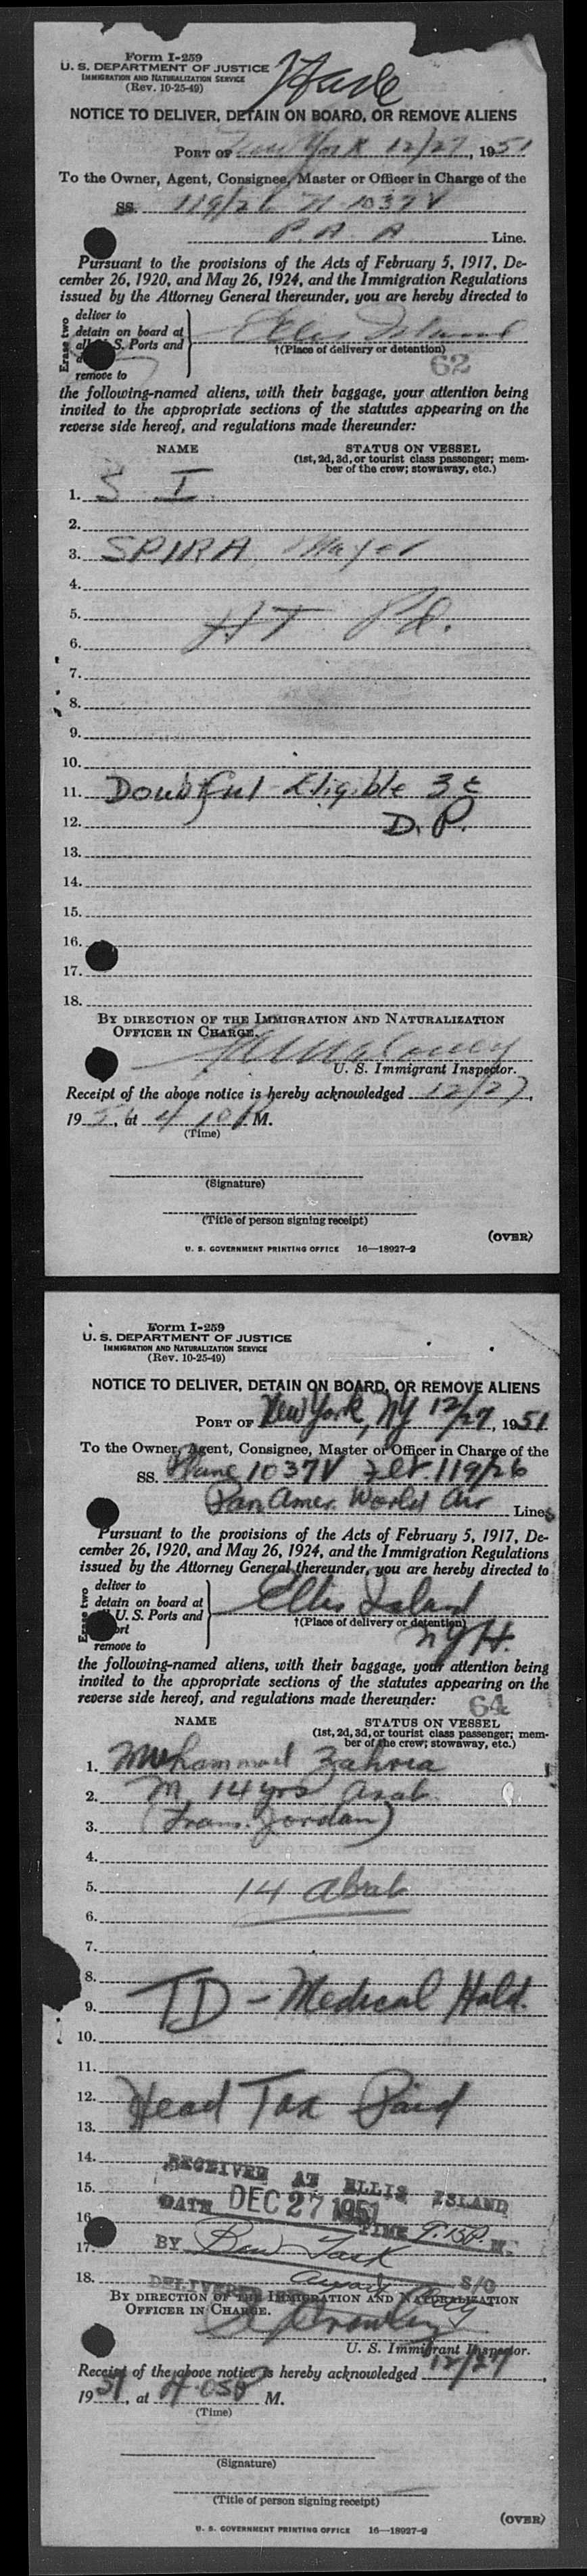 Form I-259
U. S. DEPARTMENT OF JUSTICE
IMMIGRATION AND NATURALIZATION SERVICE
(Rev. 10-25-49)
NOTICE TO DELIVER, DETAIN ON BOARD, OR REMOVE ALIENS
PORT OF New York 12/27, 1951
To the Owner, Agent, Consignee, Master or Officer in Charge of the
SS. 119/26 N 1037V
P. A. A. Line.
Pursuant to the provisions of the Acts of February 5, 1917, De-
cember 26, 1920, and May 26, 1924, and the Immigration Regulations
issued by the Attorney General thereunder, you are hereby directed to
Erase two
deliver to
detain on board at
all S. Ports and
remove to
Ellis Island
†(Place of delivery or detention)
62
the following-named aliens, with their baggage, your attention being
invited to the appropriate sections of the statutes appearing on the
reverse side hereof, and regulations made thereunder:
NAME
STATUS ON VESSEL
(1st, 2d, 3d, or tourist class passenger; mem-
ber of the crew; stowaway, etc.)
1. S I
2.
3. SPIRA, Mayer
4.
5. HT Pd.
6.
7.
8.
9.
10.
11. Doubtful Eligible 3c
12. D.P.
13.
14.
15.
16.
17.
18.
BY DIRECTION OF THE IMMIGRATION AND NATURALIZATION
OFFICER IN CHARGE.
U. S. Immigrant Inspector.
Receipt of the above notice is hereby acknowledged 12/27,
19 51, at 4 10 P M.
(Time)
(Signature)
(Title of person signing receipt)
(OVER)
U. S. GOVERNMENT PRINTING OFFICE 16—18927-2
Form I-259
U. S. DEPARTMENT OF JUSTICE
IMMIGRATION AND NATURALIZATION SERVICE
(Rev. 10-25-49)
NOTICE TO DELIVER, DETAIN ON BOARD, OR REMOVE ALIENS
PORT OF New York, NY 12/27, 1951
To the Owner, Agent, Consignee, Master or Officer in Charge of the
SS. Plane 1037V Flt. 119/26
Pan Amer. World Air Lines
Pursuant to the provisions of the Acts of February 5, 1917, De-
cember 26, 1920, and May 26, 1924, and the Immigration Regulations
issued by the Attorney General thereunder, you are hereby directed to
Erase two
deliver to
detain on board at
U. S. Ports and
remove to
Ellis Island
†(Place of delivery or detention)
NYH.
the following-named aliens, with their baggage, your attention being
invited to the appropriate sections of the statutes appearing on the
reverse side hereof, and regulations made thereunder:
64
NAME
STATUS ON VESSEL
(1st, 2d, 3d, or tourist class passenger; mem-
ber of the crew; stowaway, etc.)
1. Muhammad Zahria
2. M 14 yrs Arab
3. (Trans. Jordan)
4.
5. 14
6.
7.
8. TD - Medical Hold.
9.
10.
11.
12. Head Tax Paid
13.
14.
RECEIVED AT ELLIS ISLAND
15.
DATE DEC 27 1951
16.
TIME 9.15P. M.
17.
BY
S/O
18.
DELIVERED
BY DIRECTION OF THE IMMIGRATION AND NATURALIZATION
OFFICER IN CHARGE.
U. S. Immigrant Inspector.
Receipt of the above notice is hereby acknowledged 12/27,
19 51, at 4.05P M.
(Time)
(Signature)
(Title of person signing receipt)
(OVER)
U. S. GOVERNMENT PRINTING OFFICE 16—18927-2